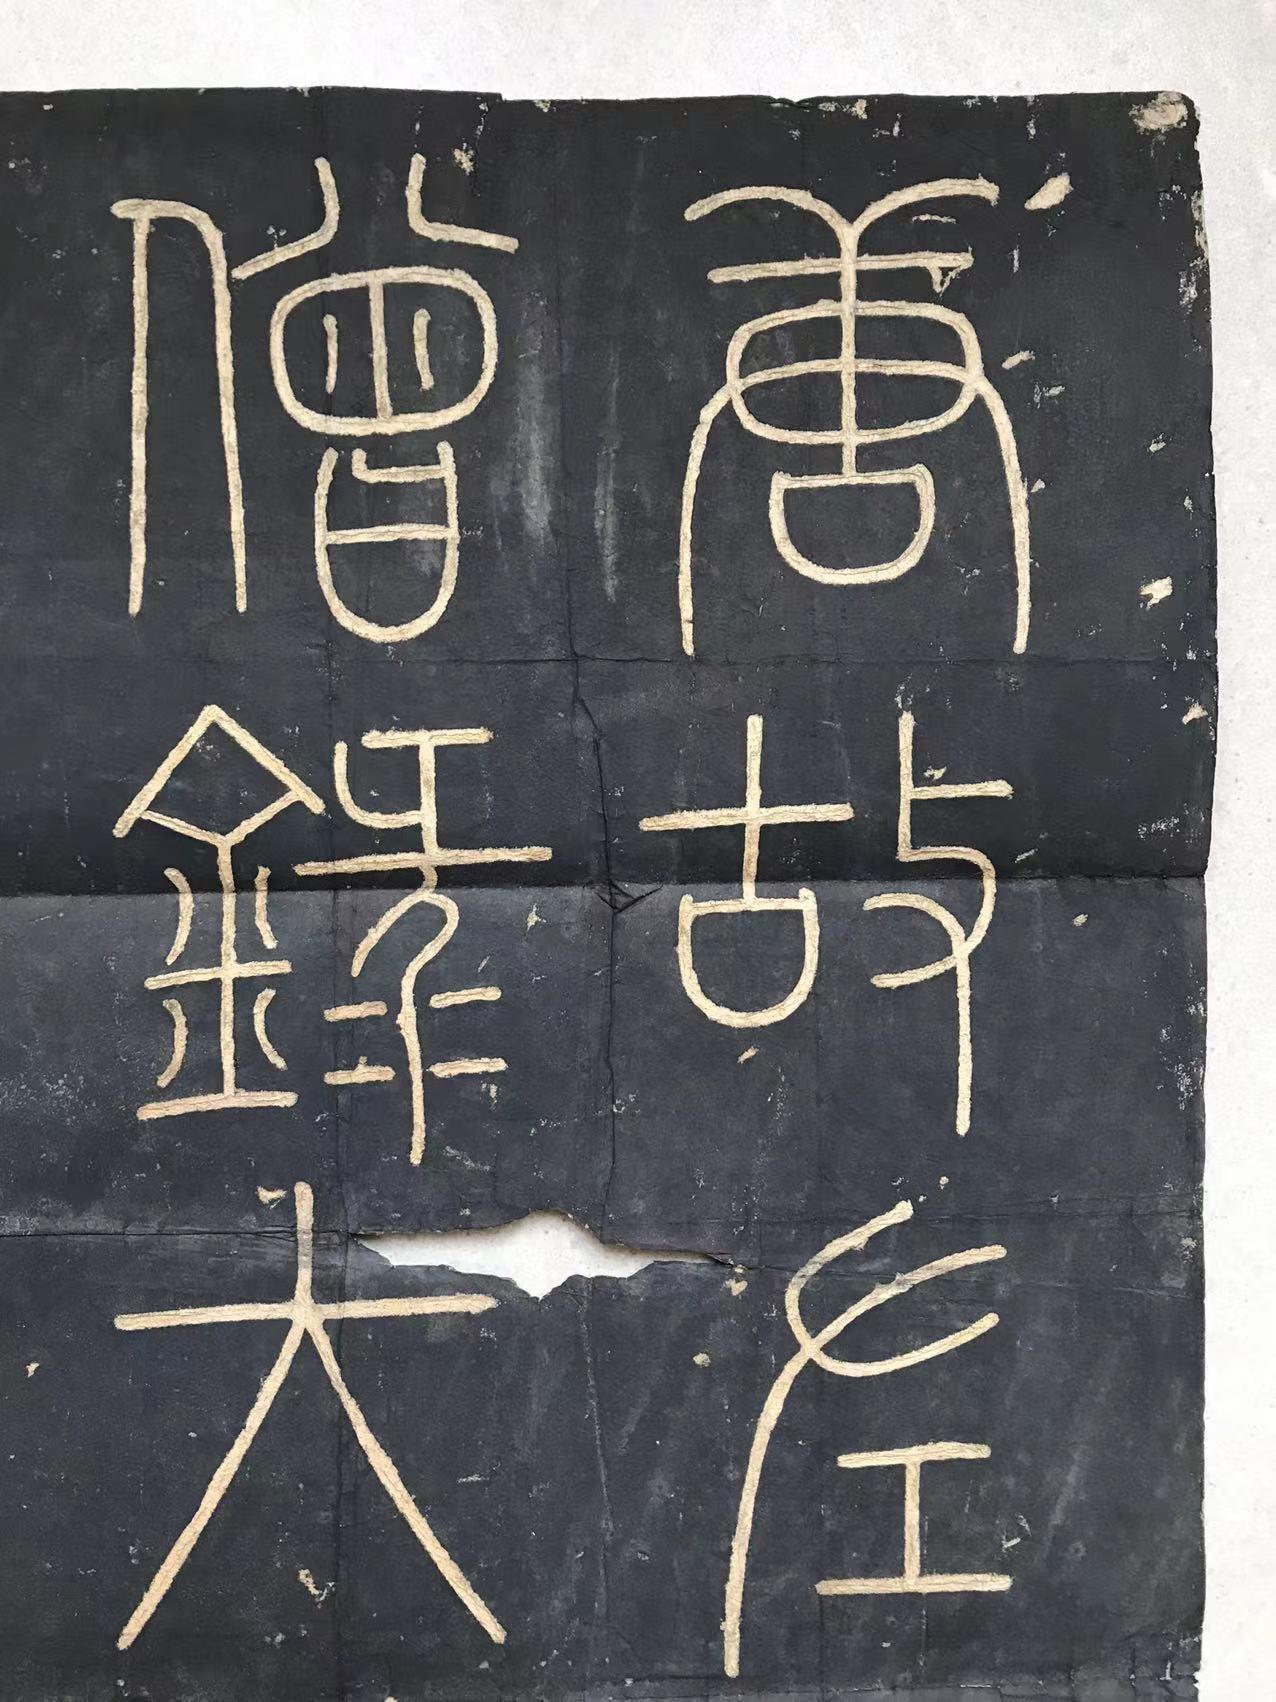 唐故左
僧錄大